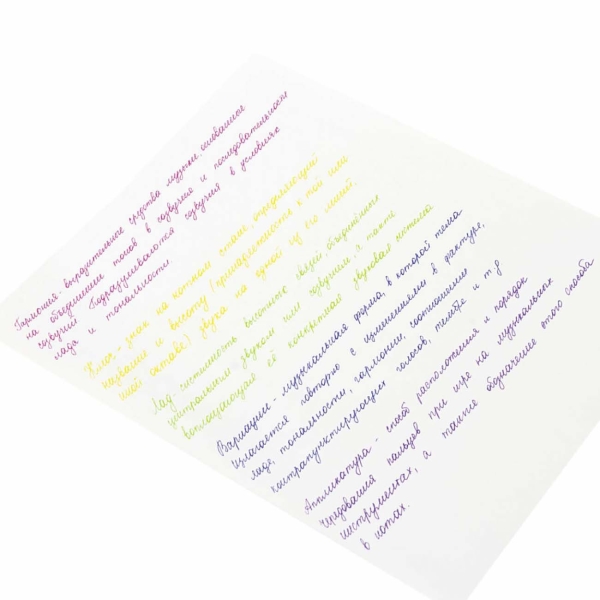 Гармония - выразительные средства музыки, основанные
на объединении тонов в созвучия и последовательности
созвучий. Подразумеваются созвучия в условиях
лада и тональности.
Ключ - знак на нотном стане, определяющий
название и высоту (принадлежность к той или
иной октаве) звука на одной из его линий.
Лад - системность высотных связей, объединённых
центральным звуком или созвучием, а также
воплощающая её конкретная звуковая система
Вариации - музыкальная форма, в которой тема
излагается повторно с изменениями в фактуре,
ладе, тональности, гармонии, соотношении
контрапунктирующих голосов, тембре и т.д
Аппликатура - способ расположения и порядок
чередования пальцев при игре на музыкальных
инструментах, а также обозначение этого способа
в нотах.